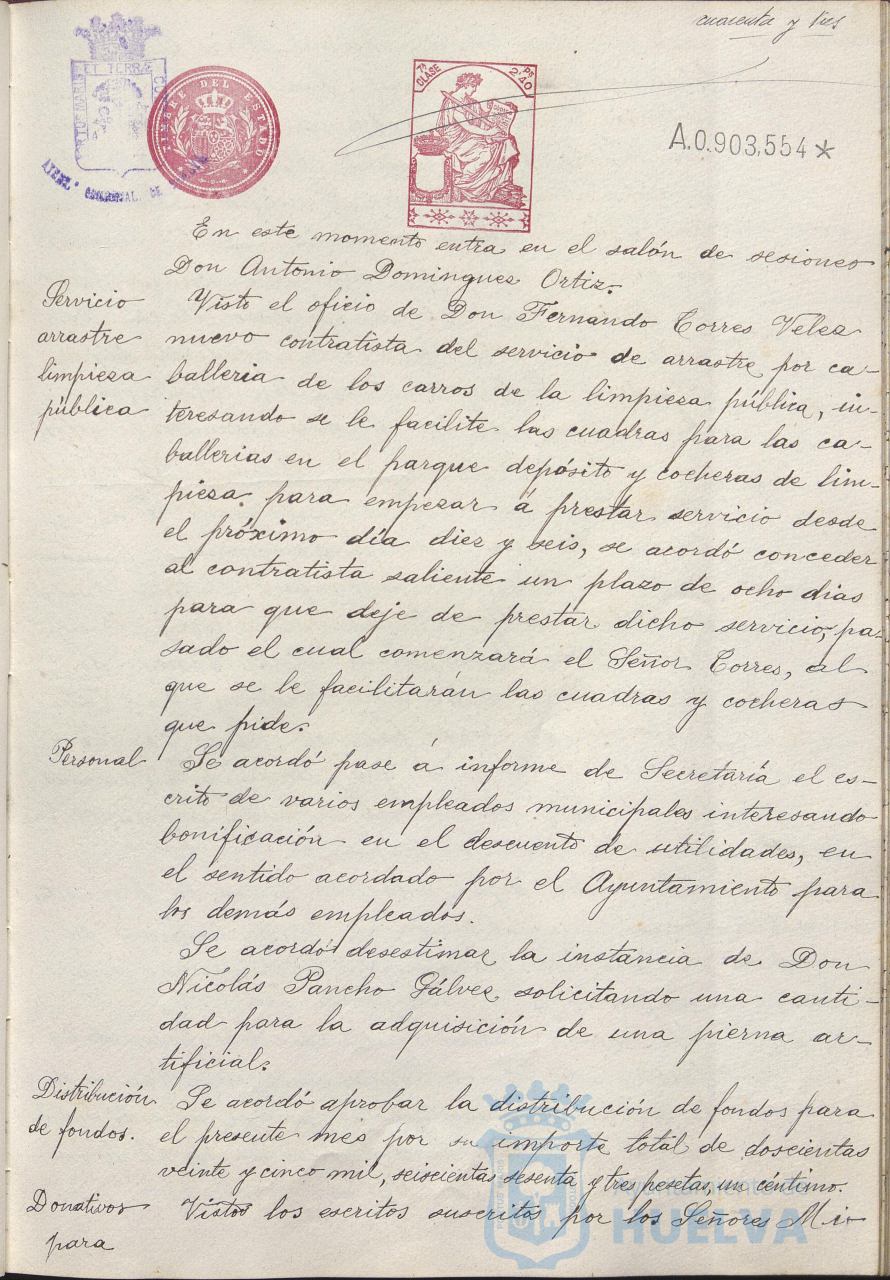 cuarenta y tres
ET TERRAE
TIMBRE DEL ESTADO
7ª CLASE
2'40 PS
A.0.903,554 *
En este momento entra en el salón de sesiones
Don Antonio Domingues Ortiz.
Servicio
arrastre
limpieza
pública
Visto el oficio de Don Fernando Torres Velea
nuevo contratista del servicio de arrastre por ca-
balleria de los carros de la limpieza pública, in-
teresando se le facilite las cuadras para las ca-
ballerias en el parque depósito y cocheras de lim-
pieza para empezar á prestar servicio desde
el próximo día diez y seis, se acordó conceder
al contratista saliente un plazo de ocho dias
para que deje de prestar dicho servicio, pa-
sado el cual comenzará el Señor Torres, al
que se le facilitarán las cuadras y cocheras
que pide.
Personal
Se acordó pase á informe de Secretaría el es-
crito de varios empleados municipales interesando
bonificación en el descuento de utilidades, en
el sentido acordado por el Ayuntamiento para
los demás empleados.
Se acordó desestimar la instancia de Don
Nicolás Pancho Gálvez solicitando una canti-
dad para la adquisición de una pierna ar-
tificial.
Distribución
de fondos.
Se acordó aprobar la distribución de fondos para
el presente mes por su importe total de doscientas
veinte y cinco mil, seiscientas sesenta y tres pesetas, un céntimo.
Donativos
para
Vistos los escritos suscritos por los Señores Mi-
HUELVA